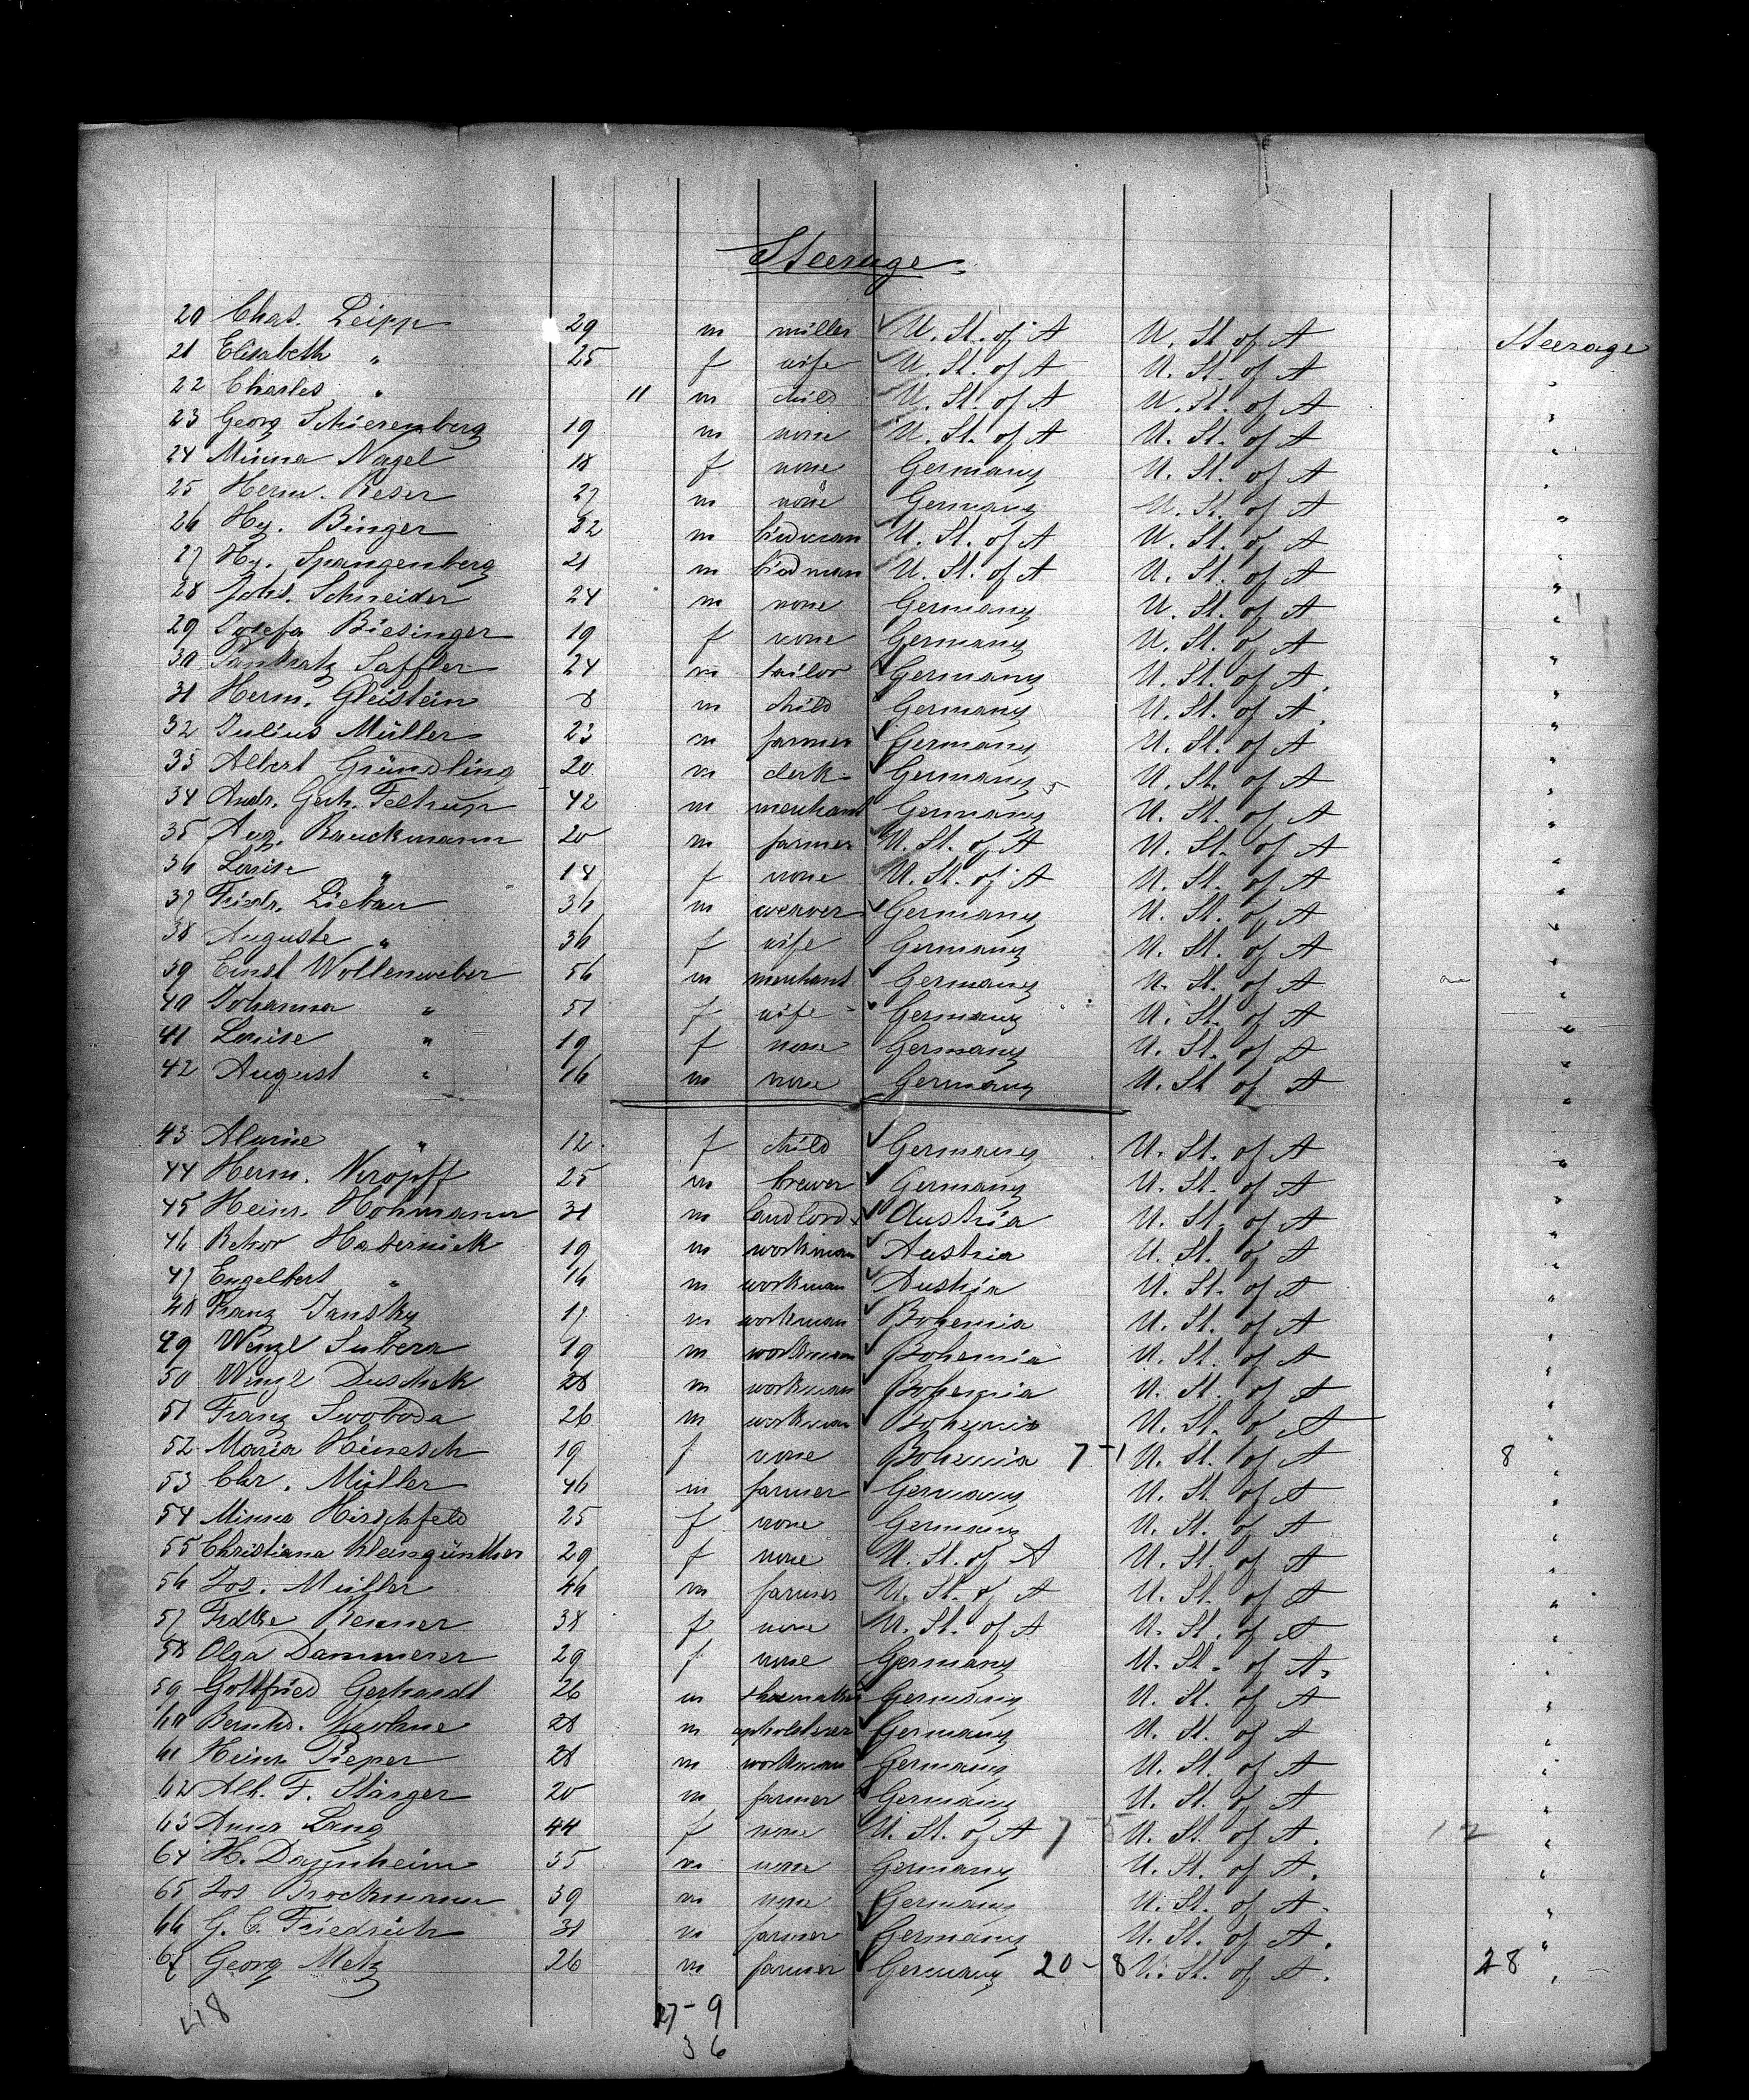 Steerage
20 Chas. Leipp 29 m miller U. St. of A U. St of A Steerage
21 Elisabeth " 25 f wife U. St. of A U. St. of A "
22 Charles " 11 m child U. St. of A U. St. of A "
23 Georg Schierenberg 19 m none U. St. of A U. St. of A "
24 Minna Nagel 18 f none Germany U. St. of A "
25 Herm. Reser 27 m none Germany U. St. of A "
26 Hy. Binger 22 m U. St. of A U. St. of A "
27 Hy. Spangenberg 21 m U. St. of A U. St. of A "
28 Johs. Schneider 24 m none Germany U. St. of A "
29 Josefa Biesinger 19 f none Germany U. St. of A "
30 Pankratz Saffler 24 m tailor Germany U. St. of A. "
31 Herm. Gleistein 8 m child Germany U. St. of A. "
32 Julius Müller 23 m farmer Germany U. St. of A "
33 Albert Gründling 20 m clerk Germany 5 U. St. of A "
34 Andr. Gerh. Feltrup 42 m merchant Germany U. St. of A "
35 Aug. Rauckmann 20 m farmer U. St. of A U. St. of A "
36 Louise " 18 f none U. St. of A U. St. of A "
37 Friedr. Liebau 36 m weaver Germany U. St. of A "
38 Auguste " 36 f wife Germany U. St. of A "
39 Ernst Wollenweber 56 m merchant Germany U. St. of A "
40 Johanna " 51 f wife Germany U. St. of A "
41 Louise " 19 f none Germany U. St. of A "
42 August " 16 m none Germany U. St of A "
43 " 12 f child Germany U. St. of A "
44 Herm. 25 m brewer Germany U. St. of A "
45 Heinr. Hohmann 31 m landlord Austria U. St. of A "
46 19 m workman Austria U. St. of A "
47 Engelbert " 16 m workman Austria U. St. of A "
48 Franz Jansky 17 m workman Bohemia U. St. of A "
49 Wenzl Subera 19 m workman Bohemia U. St. of A "
50 Wenzl Duschek 28 m workman Bohemia U. St. of A "
51 Franz Swoboda 26 m workman Bohemia U. St. of A "
52 Maria Heinesch 19 f none Bohemia 7-1 U. St. of A 8 "
53 Chr. Müller 46 m farmer Germany U. St. of A "
54 Minna Hirschfeld 25 f none Germany U. St. of A "
55 Christiana Kleingünther 29 f none U. St. of A U. St. of A "
56 Jos. Müller 46 m farmer U. St. of A U. St. of A "
57 Fredke Renner 38 f none U. St. of A U. St. of A "
58 Olga Dammerer 29 f none Germany U. St. of A. "
59 Gottfried Gerhardt 26 m shoemaker Germany U. St. of A "
60 Bernhd. 28 m upholsterer Germany U. St. of A "
61 Heinr Pieper 28 m workman Germany U. St. of A "
62 Alb. F. Stärger 20 m farmer Germany U. St. of A "
63 Anna Lang 44 f none U. St. of A 7-5 U. St. of A. 12 "
64 H. Dannheim 35 m none Germany U. St. of A. "
65 Jos Brockmann 39 m none Germany U. St. of A. "
66 G. C. Friedrich 31 m farmer Germany U. St. of A. "
67 Georg Metz 26 m farmer Germany 20-8 U. St. of A. 28 "
48 27-9
36